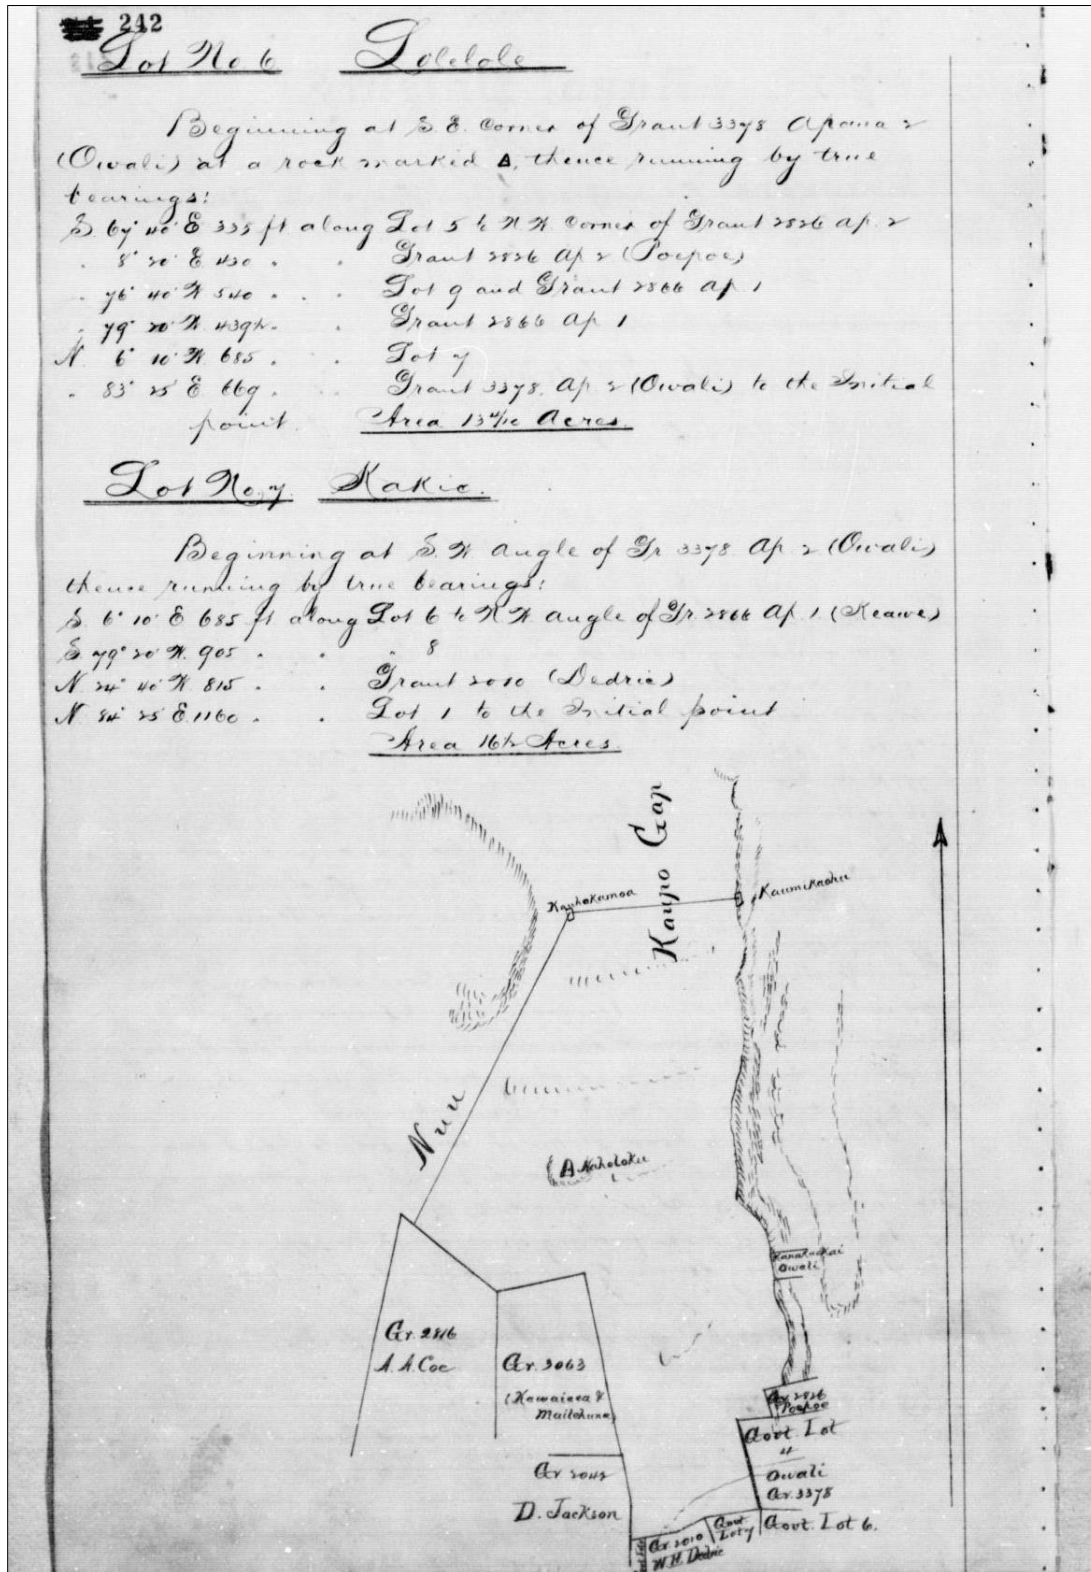 242
Lot No 6 Lolelole
Beginning at S. E. Corner of Grant 3378 Apana 2
(Owali) at a rock marked Δ, thence running by true
bearings:
S. 67° 40' E 335 ft along Lot 5 to N. W. Corner of Grant 2826 Ap. 2
" 8° 20' E 430 " " Grant 2826 Ap 2 (Poepoe)
" 76° 40' W 540 " " Lot 9 and Grant 2866 Ap 1
" 79° 20' W. 439½ " " Grant 2866 Ap 1
N 6° 10' W. 685 " " Lot 7
" 83° 25' E 669 " " Grant 3378. Ap 2 (Owali) to the Initial
point. Area Acres.
Lot No. 7 Kakio.
Beginning at S. W. Angle of Gr 3378 Ap. 2 (Owali)
thence running by true bearings:
S. 6° 10' E 685 ft along Lot 6 to N W. Angle of Gr. 2866 Ap. 1 (Keawe)
S. 79° 20' W. 905 " " " 8
N 24° 40' W. 815 " " Grant 2010 (Dedric)
N 84° 25' E. 1160 " " Lot 1 to the Initial point
Area 16½ Acres.
Kaupo Gap
Kaumikaohu
Nuu
Δ Naholoku
Owali
Gr. 2816
A. A. Coe
Gr. 3063
(Kawaiaea &
Mailehuna)
Gr. 2826
Poepoe
Govt. Lot
4
Owali
Gr. 3378
Gr 2042
D. Jackson
Govt. Lot 6.
Govt.
Lot 7
Gr 2010
W. H. Dedric